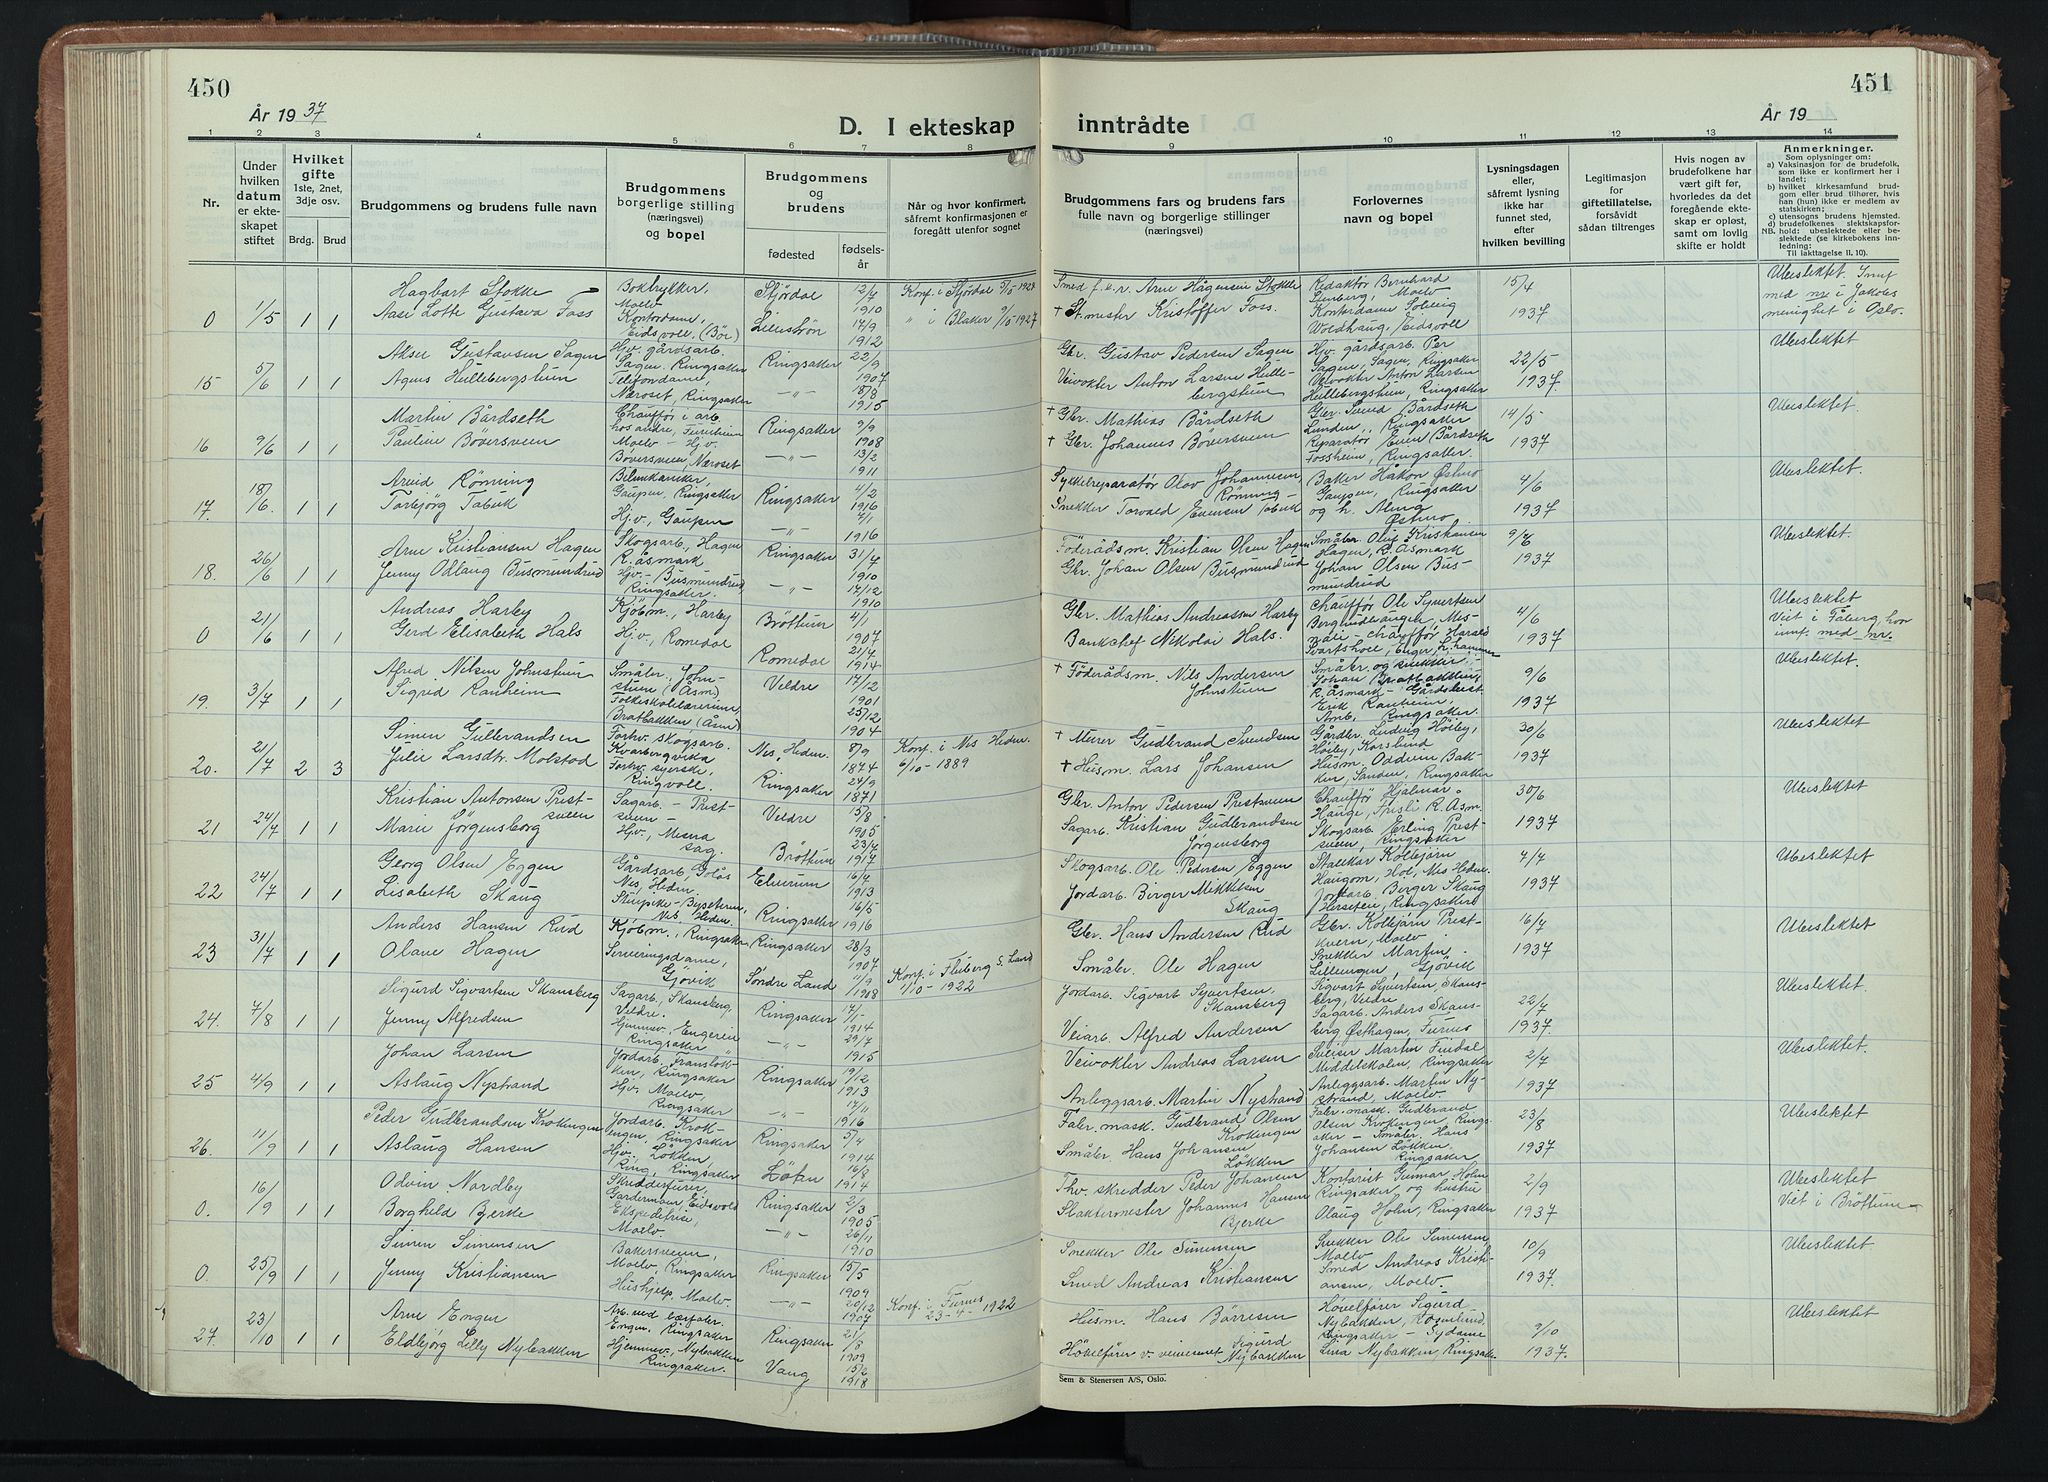 450
År 1937
D. I ekteskap
1 2 3 4 5 6 7 8
Nr.
Under hvilken datum er ekteskapet stiftet
Hvilket gifte 1ste, 2net, 3dje osv.
Brdg. Brud
Brudgommens og brudens fulle navn
Brudgommens borgerlige stilling (næringsvei) og bopel
Brudgommens og brudens
fødested fødselsår
Når og hvor konfirmert, såfremt konfirmasjonen er foregått utenfor sognet
Hagbart Stokke Boktrykker, Moelv Stjördal 12/7 1910 Konf. i Stjördal
0 1/5 1 1 Aase Lotte Gustava Foss Kontordame, Eidsvoll. (Bör) Lilleström 17/9 1912 " i Blaker 1927
Aksel Gustavsen Sagen Hjv. gårdsarb. Sagen, Ringsaker Ringsaker 22/9 1907
15 5/6 1 1 Agnes Hullebergstuen Telefondame, Næroset, Ringsaker -"- 18/8 1915
Martin Bårdseth Chauffør i arb. hos andre, Furuheim Moelv Ringsaker 9/9 1908
16 9/6 1 1 Pauline Böversveen Hjv. Böversveen, Næroset -"- 13/2 1911
Arvid Rönning Bilmekaniker, Gaupen, Ringsaker Ringsaker 4/2 1916
17. 18/6. 1 1 Torbjörg Tobuk Hj.v., Gaupen -"- 7/1 1916
Arne Kristiansen Hagen Skogsarb., Hagen R. åsmark Ringsaker 31/7 1910
18. 26/6 1 1 Jenny Odlaug Busmundrud Hjv. - Busmundrud, Ringsaker. -"- 17/12 1910
Andreas Harby Kjöbm., Harby Bröttum 4/1 1907
0 21/6 1 1 Gerd Elisabeth Hals Hj.v., Romedal Romedal 21/7 1914
Alfred Nilsen Johnstuen Småbr., Johnstuen (Åsm) Veldre 17/12 1901
19. 3/7 1 1 Sigrid Ranheim Folkeskolelærerinne, Bratbakken (Åsm) 25/12 1904
Simen Gulbrandsen Forhv. skogsarb. Kvarbergvika Nes, Hedm. 8/9 1874 Konf. i Nes Hedm. 6/10 - 1889
20. 21/7 2 3 Julie Larsdtr. Molstad Forhv. syerske, Ringvoll. Ringsaker 24/9 1871
Kristian Antonsen Prestsveen Sagarb. - Prestsveen - Veldre 15/8 1905
21 24/7 1 1 Marie Jörgensborg Hjv., Mesna sag. Bröttum 23/7 1917
Georg Olsen Eggen Gårdsarb. Golås Nes, Hedm. Elverum 16/4 1913
22 24/7 1 1 Lisabeth Skaug Nes, Hedm. Ringsaker 16/5 1916
Anders Hansen Rud Kjöbm., Ringsaker Ringsaker 28/3 1907
23 31/7 1 1 Olave Hagen Serveringsdame, Gjövik Söndre Land 11/9 1908 Konf. i Fluberg S. Land 1/10 - 1922
Sigurd Sigvartsen Skansberg Sagarb., Skansberg, Veldre. Ringsaker 1914
24. 7/8 1 1 Jenny Alfredsen Hjemmev., Ringsaker -"- 29/7 1915
Johan Larsen Jordarb. Ringsaker Ringsaker 19/12 1913
25 4/9 1 1 Aslaug Nystrand Hj.v. Moelv, Ringsaker -"- 17/11 1916
Peder Gudbrandsen Krokengen Jordarb. Krokengen, Ringsaker Ringsaker 5/4 1914
26. 11/9 1 1 Aslaug Hansen Hjv. Lökken, Ring, Ringsaker Löten 16/8 1914
Odvin Nordby Skredderfører, Gardermoen, Eidsvold Ringsaker 2/3 1905
0. 16/9 1 1 Borghild Bjerke Ekspeditrise, Moelv. -"- 26/11 1910
Simen Simensen Bakersvenn, Moelv, Ringsaker Ringsaker 15/5 1909
0. 25/9 1 1 Jenny Kristiansen Hushjelp, Moelv. -"- 20/12 1907 Konf. i Furnes 23-4-1922
Arne Engen Engen, Ringsaker Ringsaker 2/8 1909
27. 23/10 1 1 Eldbjörg Lilly Nybakken Hjemmev., Nybakken Ringsaker. Vang 15/2 1918
451
År 19
inntrådte
9 10 11 12 13 14
Brudgommens fars og brudens fars fulle navn og borgerlige stillinger (næringsvei)
Forlovernes navn og bopel
Lysningsdagen eller, såfremt lysning ikke har funnet sted, efter hvilken bevilling
Legitimasjon for giftetillatelse, forsåvidt sådan tiltrenges
Hvis nogen av brudefolkene har vært gift før, hvorledes da det foregående ekteskap er opløst, samt om lovlig skifte er holdt
Anmerkninger.
Som oplysninger om:
a) Vaksinasjon for de brudefolk, som ikke er konfirmert her i landet;
b) hvilket kirkesamfund brudgom eller brud tilhører, hvis han (hun) ikke er medlem av statskirken;
c) utensogns brudens hjemsted.
d) brudefolkenes slektskapsforhold: ubeslektede eller beslektede (se kirkebokens innledning:
NB. Til iakttagelse II. 10).
Smed f.k.v. Arne Hågensen Stokke Redaktør Bernhard Stenberg, Moelv 15/4 Ubeslektet. Innf. med nr i Jakobs menighet i Oslo.
+ St.mester Kristoffer Foss. Kontordame Solveig Woldhaug, Eidsvoll 1937
Gbr. Gustav Pedersen Sagen Hjv. gårdsarb. Per Sagen, Sagen, Ringsaker 22/5 Ubeslektet
Veivokter Anton Larsen Hullebergstuen Veivokter Anton Larsen Hullebergstuen, Ringsaker 1937.
+ Gbr. Mathias Bårdseth Gbr. Svend Bårdseth Lunden, Ringsaker 14/5 Ubeslektet.
+ Gbr. Johannes Böversveen Reparatør Even Bårdseth Fossheim, Ringsaker. 1937
Sykkelreparatør Olav Johannesen Rönning - Baker Håkon Östmo Gaupen, Ringsaker 4/6 Ubeslektet.
Snekker Torvald Evensen Tobuk og h. Alma Östmo 1937
Föderådsm. Kristian Olsen Hagen Småbr. Oluf Kristiansen Hagen, R. Åsmark 9/6 Ubeslektet.
Gbr. Johan Olsen Busmundrud Johan Olsen Busmundrud 1937
Gbr. Mathias Andreassen Harby Chauffør Ole Syvertsen Bergunderhaugen, Mesnali - 4/6 Ubeslektet Viet i Fåberg, hvor innf. med nr.
Bankchef Nikolai Hals. chauffør Harald Svartshol, Enger, L.hammer 1937
+ Föderådsm. Nils Andersen Johnstuen Småbr. og snekker - Johan Bratbakken, R. Åsmark - 9/6 Ubeslektet.
Erik Ranheim, Ringsaker. 1937
+ Murer Gudbrand Svendsen Gårdbr. Ludvig Höiby, Höiby, Korslund 30/6 Ubeslektet
+ Husm. Lars Johansen Husm. Oddvin Bakken, Sanden, Ringsaker 1937
Gbr. Anton Pedersen Prestsveen Chauffør Hjalmar Hauge, Frisli R. Åsm. 30/6 Ubeslektet
Sagarb. Kristian Gudbrandsen Jörgensborg Skogsarb. Erling Prestsveen, Ringsaker 1937
Skogsarb. Ole Pedersen Eggen Kolbjörn Haugom, Hol, Nes Hedm. 7/7 Ubeslektet
Jordarb. Birger Mikkelsen Skaug Jordarb. Berger Skaug Ringsaker 1937
Gbr. Hans Andersen Rud Gbr. Kolbjörn Prestkvern, Moelv 16/7 Ubeslektet
Småbr. Ole Hagen Snekker Martin Lilleengen, Gjövik 1937
Jordarb. Sigvart Syvertsen, Skansberg Sigvart Syvertsen, Skansberg, Veldre 22/7 Ubeslektet.
Veiarb. Alfred Andersen Sagarb. Anders Skansberg Østhagen, Furnes 1937.
Veivokter Andreas Larsen Martin Middelskolen, Ringsaker 2/7 Ubeslektet.
Anleggsarb. Martin Nystrand Anleggsarb. Martin Nystrand, Moelv 1937.
Fabr. mask. Gudbrand Olsen Krokengen Fabr. mask. Gudbrand Olsen Krokengen Ringsaker - 23/8 Ubeslektet
Småbr. Hans Johansen Lökken Småbr. Hans Johansen Lökken Ringsaker 1937
Fhv. skredder Peder Johansen Kontorist Gunnar Holm Ringsaker og hustru 2/9 Ubeslektet Viet i Bröttum -
Slaktermester Johannes Hansen Bjerke Olaug Holm, Ringsaker 1937
Snekker Ole Simensen Snekker Ole Simensen, Moelv 10/9 Ubeslektet
Smed Andreas Kristiansen Smed Andreas Kristiansen, Moelv. 1937.
Husm. Hans Börresen Høvelfører Sigurd Nybakken, Ringsaker - 9/10 Ubeslektet
Høvelfører v. veivesenet Sigurd Nybakken Lina Nybakken, Ringsaker 1937.
Sem & Stenersen A/S, Oslo.